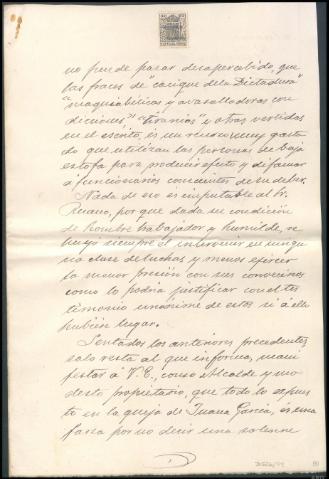 no puede pasar desapercibido, que
las frases de "cacique de la Dictadura"
"maquiabélicas y avasalladoras con
diciones," "tiranías" u otras vertidas
en el escrito, es un recurso muy gasta
do que utilizan las personas de baja
estofa para producir efecto y difamar
á funcionarios concientes de su deber.
Nada de eso es imputable al Sr.
Ruano, por que dada su condición
de hombre trabajador y humilde, re
huyó siempre el intervenir en ningu
na clase de luchas y menos ejercer
la menor presión con sus convecinos
como lo podría justificar con el tes
timonio unánime de estos si á ello
hubiera lugar.
Sentados los anteriores precedentes
solo resta al que informa, mani
festar á V. E., como Alcalde y mo
desto propietario, que todo lo expues
to en la queja de Juana García, es una
farsa por no decir una solemne